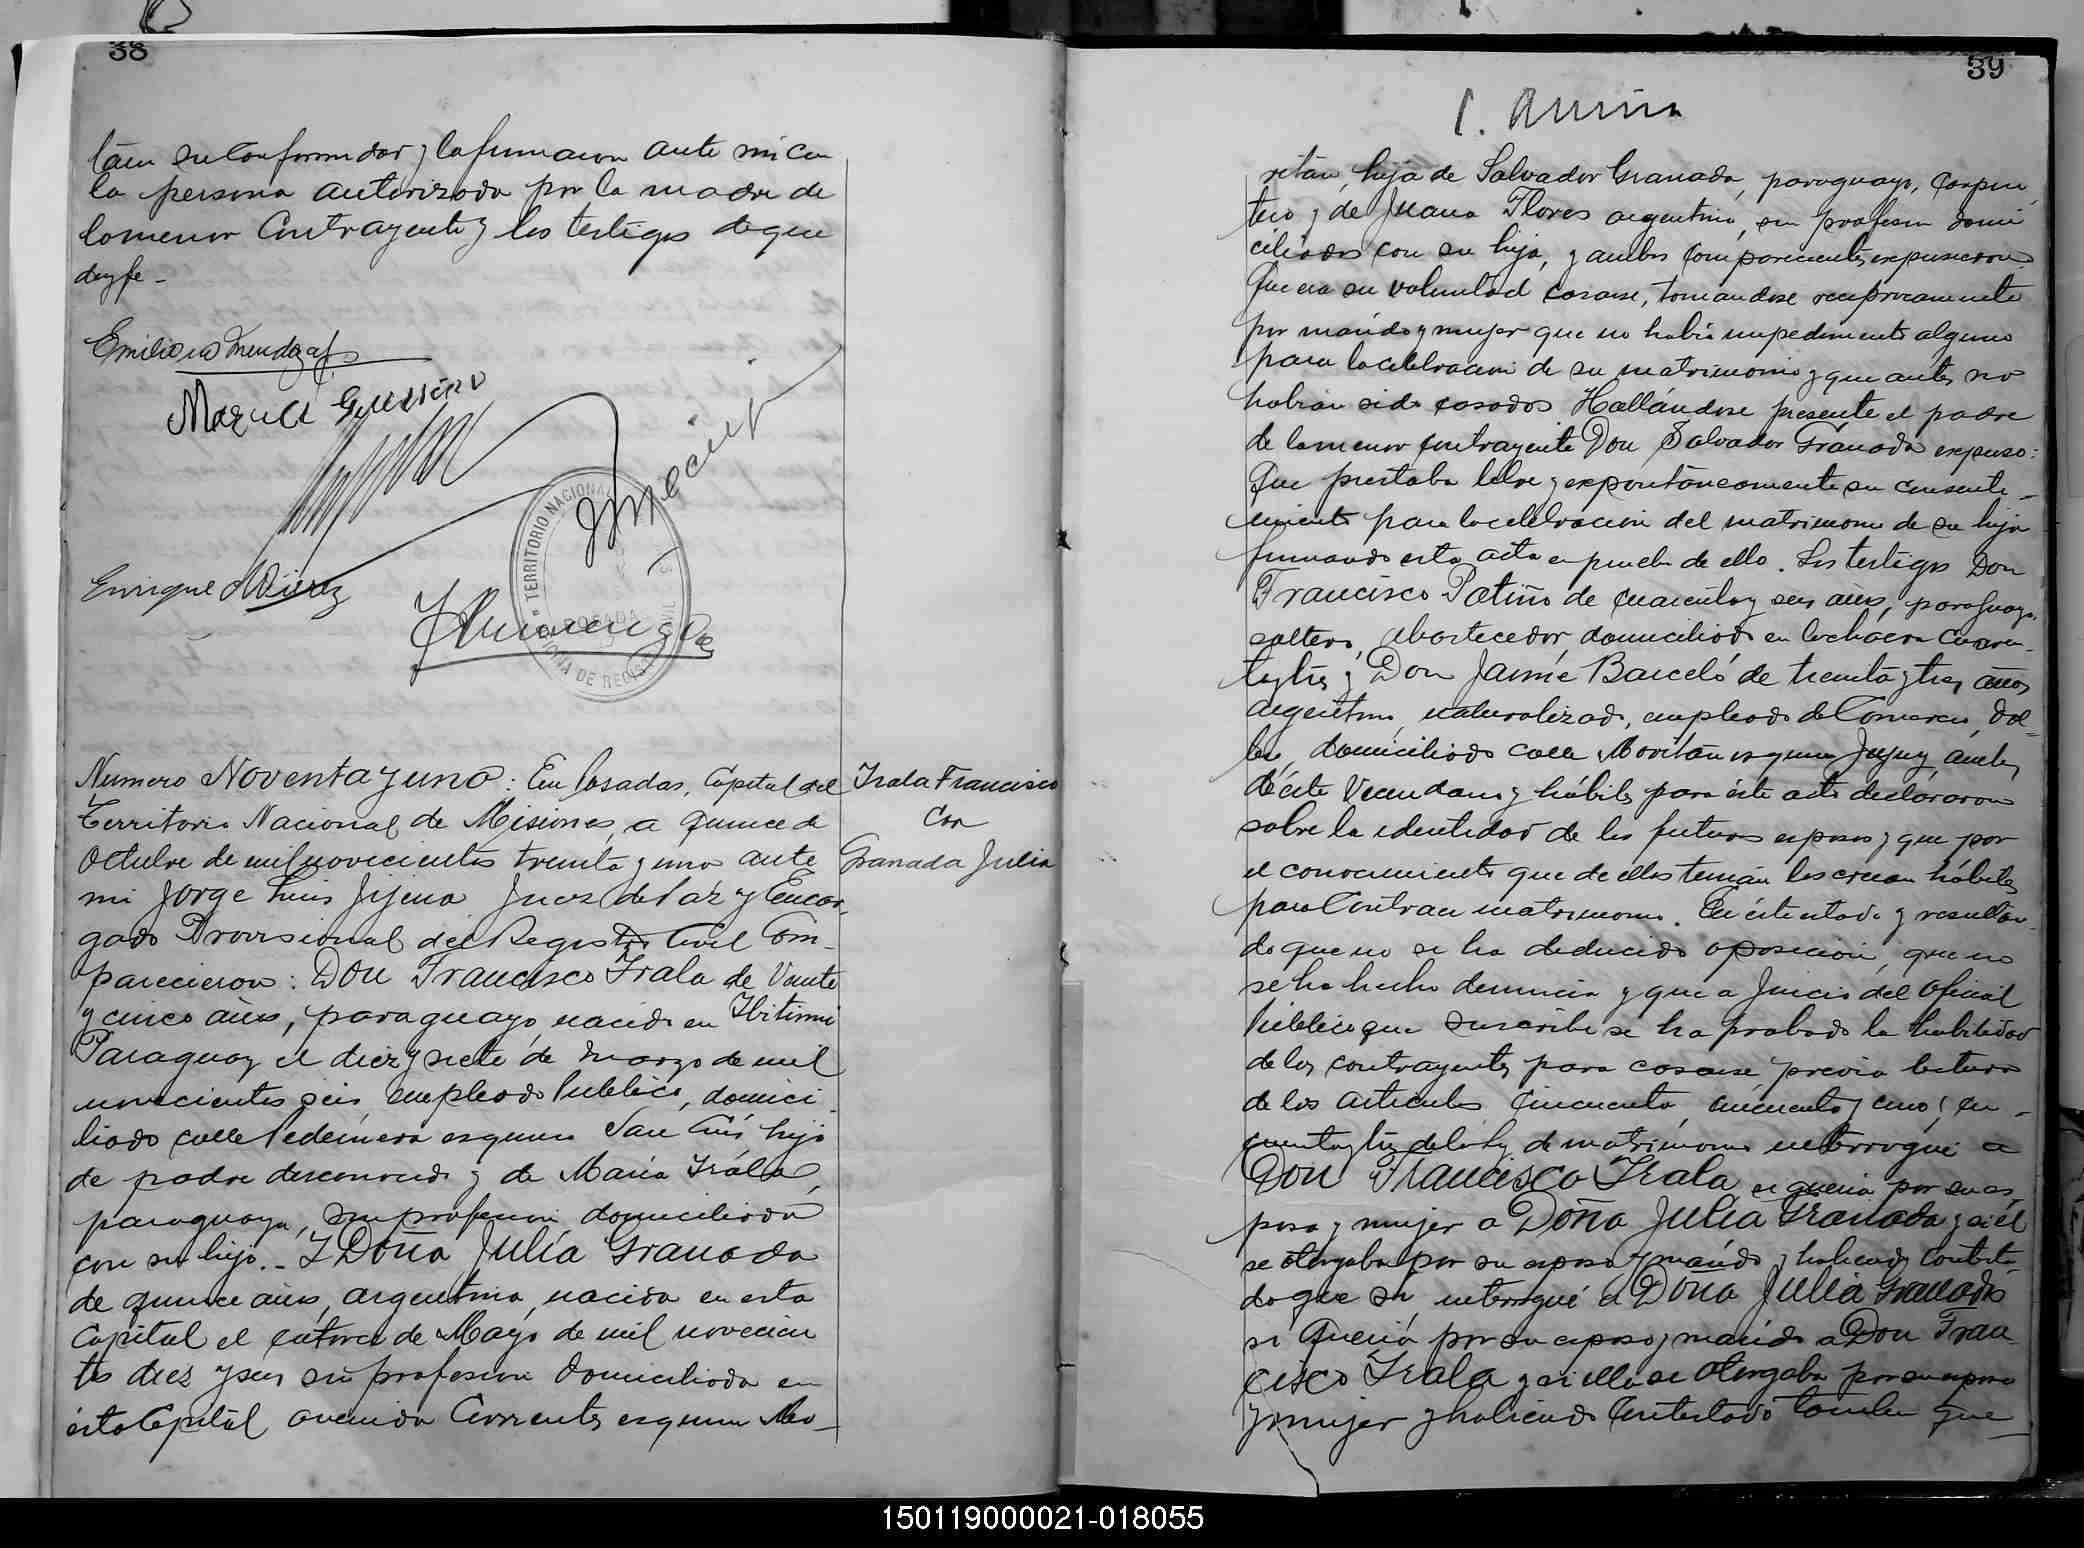 38
tan su conformidad y la firmaron ante mi con
la persona autorizada por la madre de
la menor contrayente y los testigos de que
doy fe -
Manuel
Enrique
TERRITORIO NACIONAL
POSADAS
OFICINA DE REGISTRO CIVIL
Numero Noventa y uno: En Posadas, Capital del
Territorio Nacional de Misiones, a quince de
Octubre de mil novecientos treinta y uno ante
mi Jorge Luis Jijena Juez de Paz y Encar-
gado Provisional del Registro Civil Com-
parecieron: Don Francisco Irala de Veinte
y cinco años, paraguayo, nacido en Ibitimi
Paraguay el diez y siete de Marzo de mil
novecientos seis, empleado Publico, domici-
liado calle Pedernera esquina San Luis, hijo
de padre desconocido y de Maria Irala,
paraguaya, sin profesion, domiciliada
con su hijo.- Y Doña Julia Granada
de quince años, argentina, nacida en esta
Capital el catorce de Mayo de mil novecien
tos diez y seis sin profesion domiciliada en
esta Capital avenida Corrientes esquina Mo-
Irala Francisco
Con
Granada Julia
39
ritán, hija de Salvador Granada, paraguayo, carpin
tero y de Juana Flores argentina, sin profesion domi
ciliados con su hija, y ambos comparecientes expusieron
Que era su voluntad casarse, tomandose reciprocamente
por marido y mujer que no habia impedimento alguno
para la celebracion de su matrimonio y que antes no
habian sido casados Hallándose presente el padre
de la menor contrayente Don Salvador Granada expuso:
Que prestaba libre y expontáneamente su consenti-
miento para la celebracion del matrimonio de su hija
firmando esta acta en prueba de ello. Los testigos Don
Francisco Patiño de cuarenta y seis años, paraguayo,
soltero, abastecedor, domiciliado en la chacra cuaren-
ta y tres y Don Jaime Barceló de treinta y tres años
argentino naturalizado, empleado de Comercio,
domiciliado calle Moritan esquina Jujuy, ambos
de este Vecindario y hábiles para este acto declararon
sobre la identidad de los futuros esposos y que por
el conocimiento que de ellos tenian los creian hábiles
para Contraer matrimonio. En este estado y resultan-
do que no se ha deducido oposicion, que no
se ha hecho denuncia y que a juicio del Oficial
Publico que suscribe se ha probado la habilidad
de los contrayentes para casarse previa lectura
de los articulos cincuenta, cincuenta y uno y cin-
cuenta y tres de la ley de matrimonio interrogué a
Don Francisco Irala si queria por su es
posa y mujer a Doña Julia Granada y si él
se otorgaba por su esposo y marido y habiendo contesta-
do que si interrogué a Doña Julia Granada
si queria por su esposo y marido a Don Fran
cisco Irala y si ella se otorgaba por su esposa
y mujer y habiendo contestado tambien que
150119000021-018055